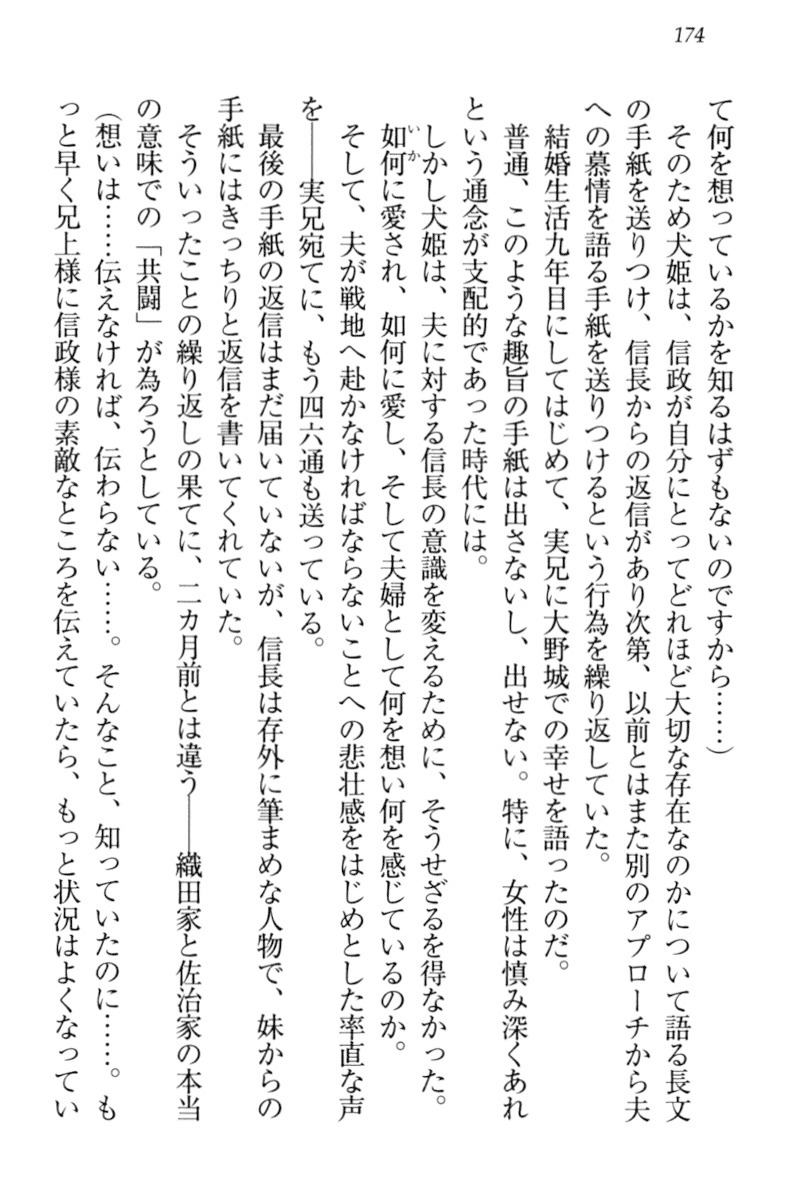 174
て何を想っているかを知るはずもないのですから……）
そのため犬姫は、信政が自分にとってどれほど大切な存在なのかについて語る長文
の手紙を送りつけ、信長からの返信があり次第、以前とはまた別のアプローチから夫
への慕情を語る手紙を送りつけるという行為を繰り返していた。
結婚生活九年目にしてはじめて、実兄に大野城での幸せを語ったのだ。
普通、このような趣旨の手紙は出さないし、出せない。特に、女性は慎み深くあれ
という通念が支配的であった時代には。
しかし犬姫は、夫に対する信長の意識を変えるために、そうせざるを得なかった。
如何に愛され、如何に愛し、そして夫婦として何を想い何を感じているのか。
いか
そして、夫が戦地へ赴かなければならないことへの悲壮感をはじめとした率直な声
を――実兄宛てに、もう四六通も送っている。
最後の手紙の返信はまだ届いていないが、信長は存外に筆まめな人物で、妹からの
手紙にはきっちりと返信を書いてくれていた。
そういったことの繰り返しの果てに、二カ月前とは違う――織田家と佐治家の本当
の意味での「共闘」が為ろうとしている。
（想いは……伝えなければ、伝わらない……。そんなこと、知っていたのに……。も
っと早く兄上様に信政様の素敵なところを伝えていたら、もっと状況はよくなってい